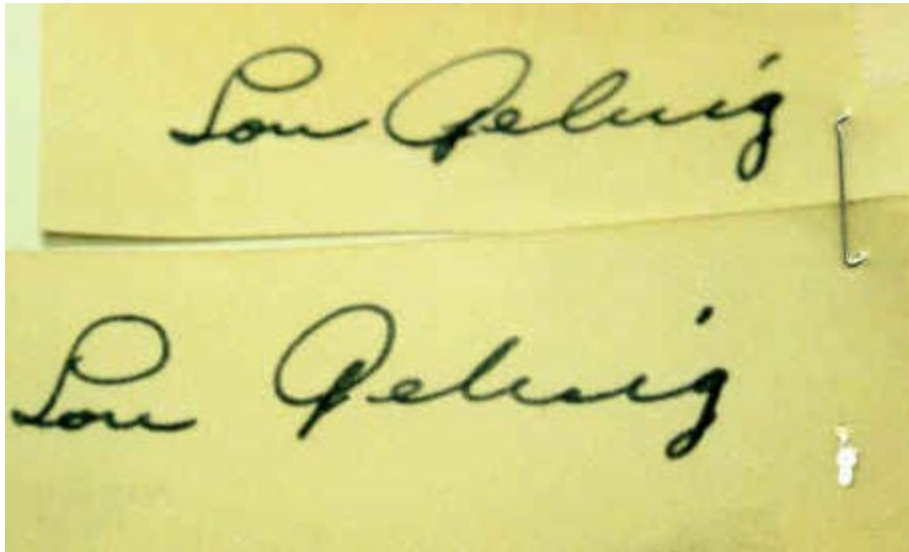 Lou Gehrig
Lou Gehrig